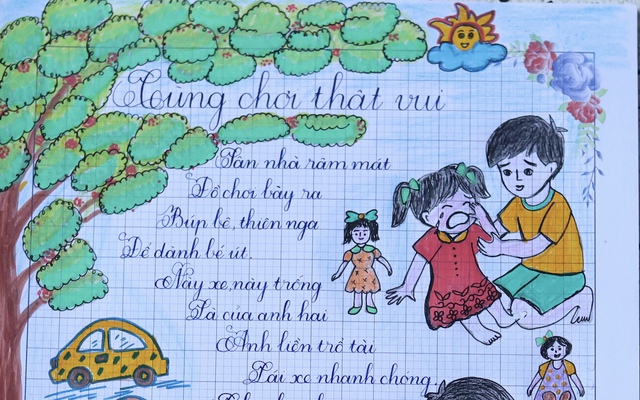 Cùng chơi thật vui
Sân nhà râm mát
Đồ chơi bày ra
Búp bê, thiên nga
Để dành bé út.
Này xe, này trống
Là của anh hai
Anh liền trổ tài
Lái xe nhanh chóng.